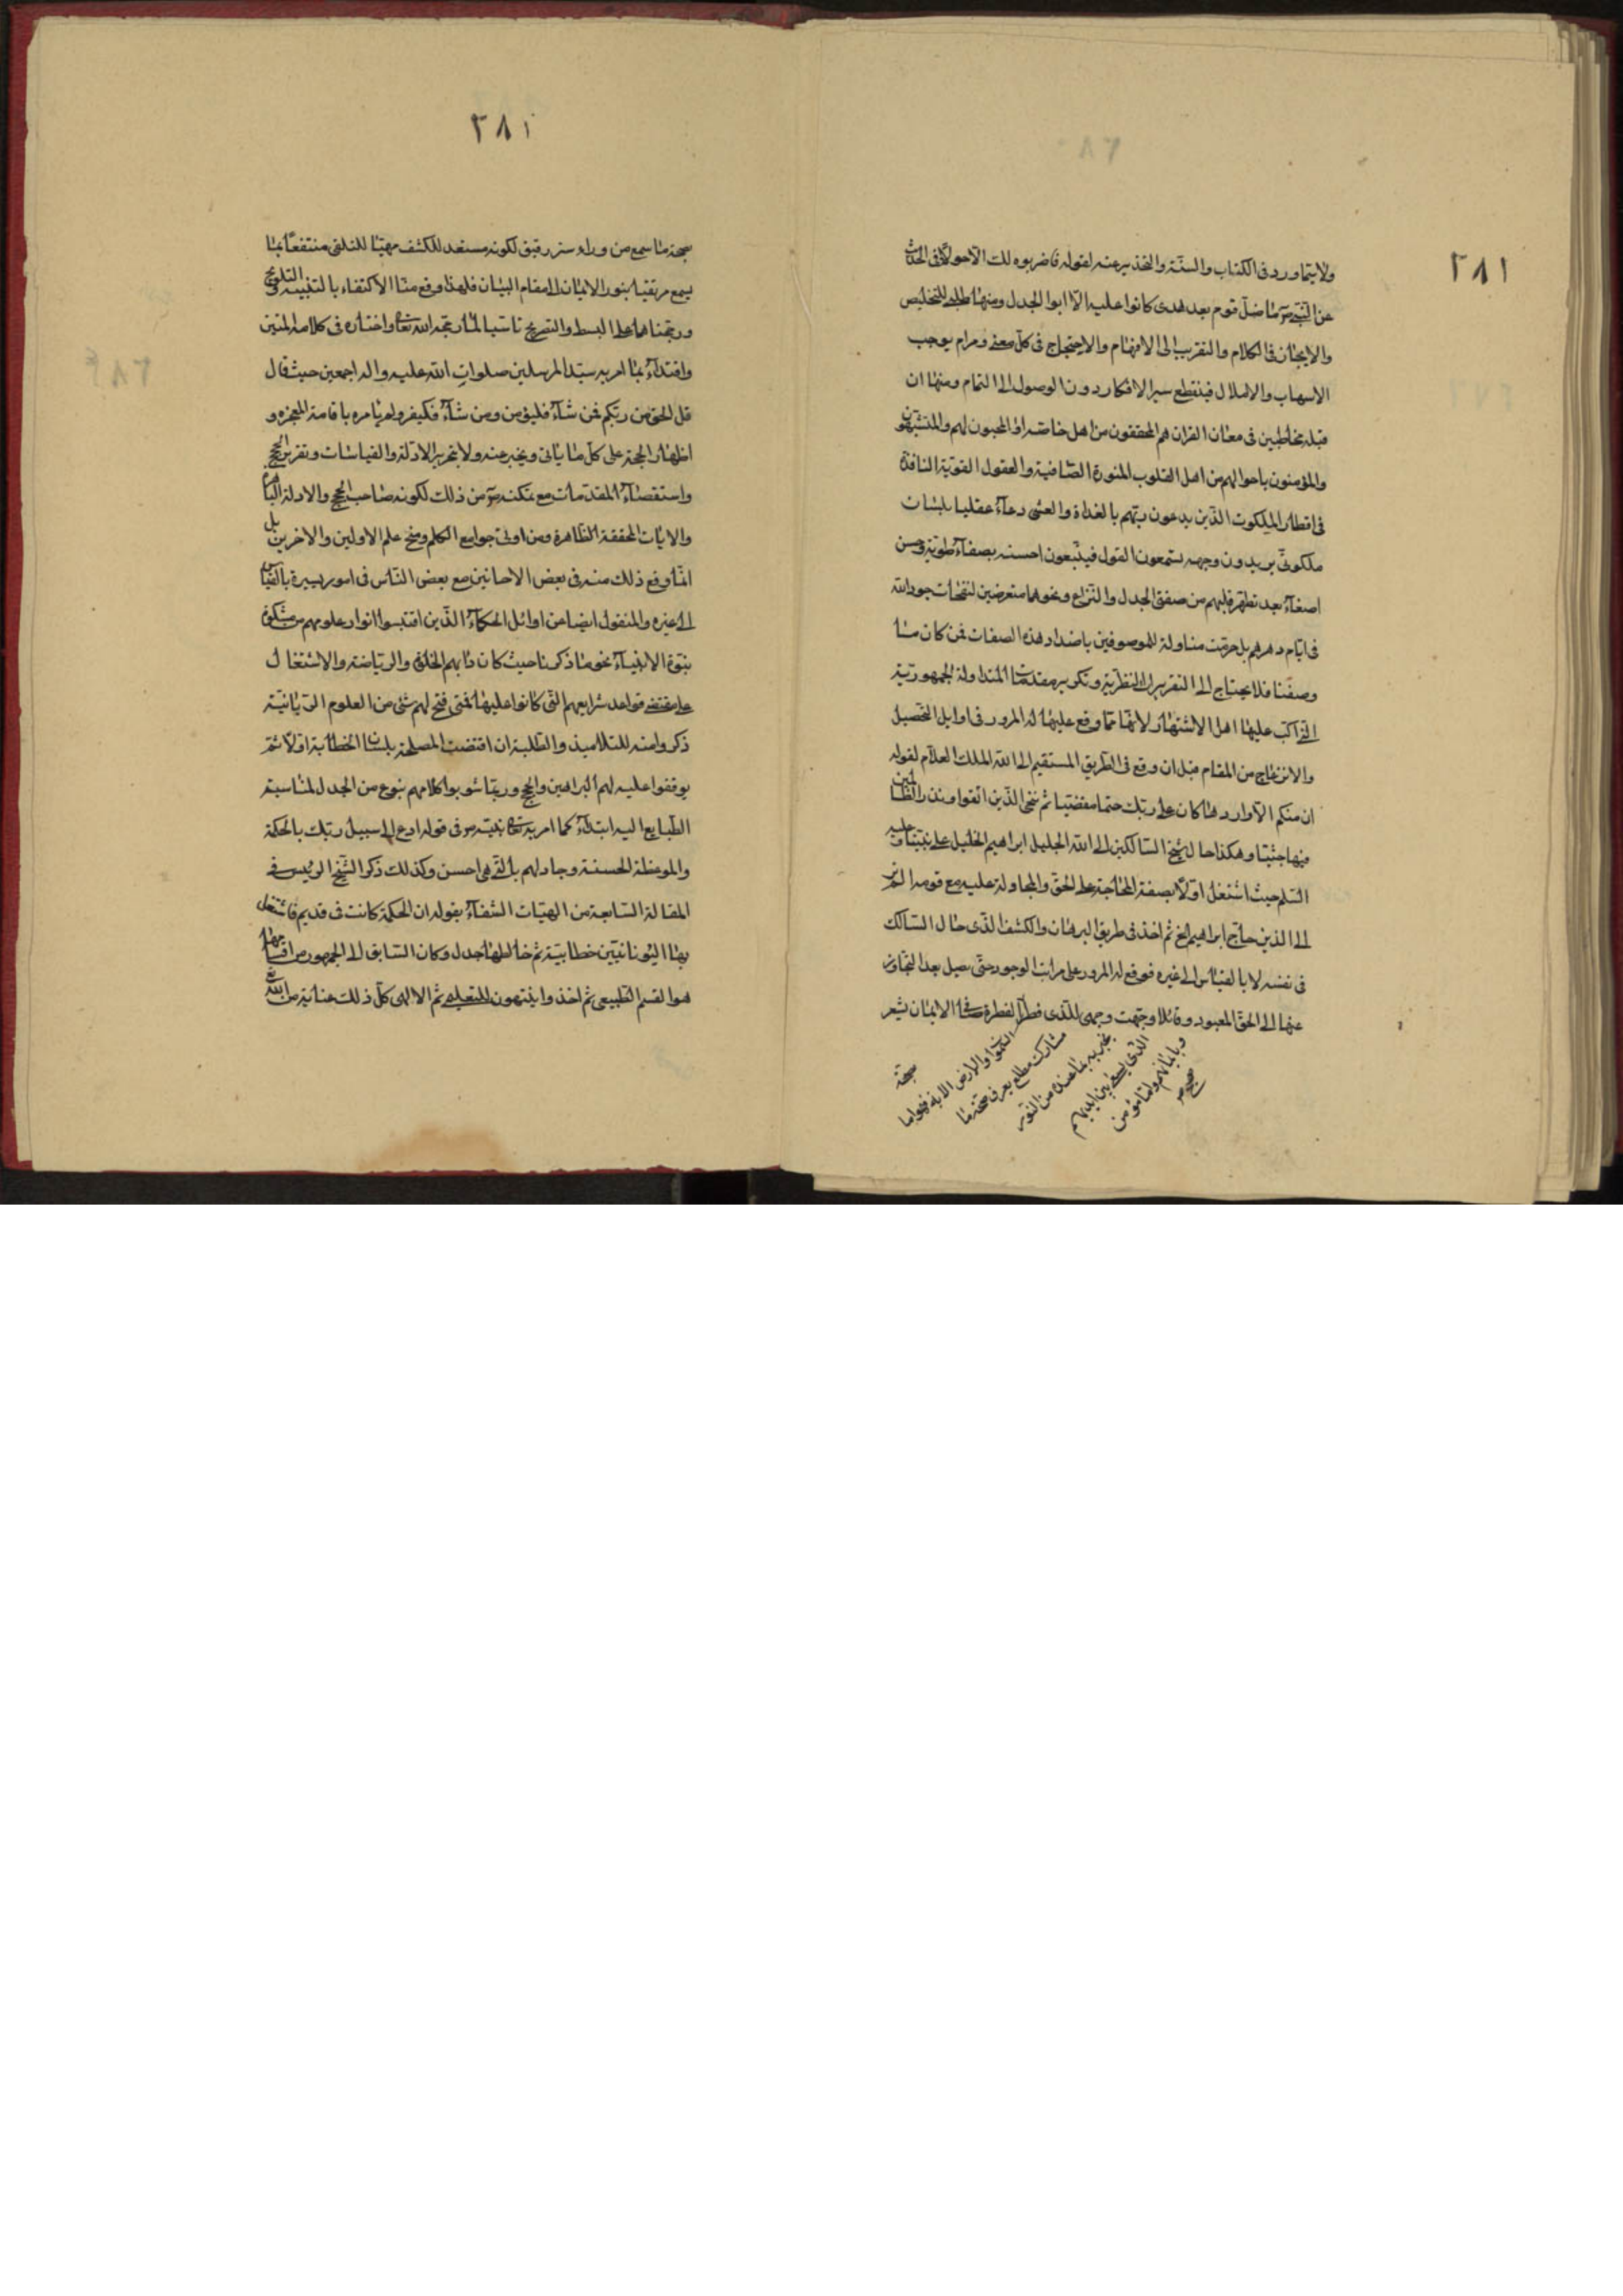 ٢٨١
ولا يتما ورد فى الكتاب والسنة والتحذير عنه لقوله ما ضربوه لك الا جدلا وفى الحديث
عن النبى ص ما ضل قوم بعد هدى كانوا عليه الا اتوا الجدل ومنها طلب التخليص
والايجاز فى الكلام والتقريب الى الافهام والاحتجاج فى كل معنى ومرام يوجب
الاسهاب والاملال فينقطع سير الافكار دون الوصول الى التمام ومنها ان
قبله مخاطبين فى معان القران هم المحققون من اهل خاصته او المحبون لهم والمتشبهون
والمؤمنون باحوالهم من اهل القلوب المنورة الصافية والعقول القوية النافذة
فى اقطار الملكوت الذين يدعون ربهم بالغداة والعشى دعاء عقليا بلسان
ملكوتى يريدون وجهه يستمعون القول فيتبعون احسنه بصفاء طوية وحسن
اصغاء بعد تطهر قلبهم من صفتى الجدل والنزاع ونحوهما متعرضين لنفحات جود الله
فى ايام دهرهم بل حرمت مناولته للموصوفين باضداد هذه الصفات فمن كان كما
وصفنا فلا يحتاج الى التقريرات النظرية وتكرير مقدمات المتداولة الجمهورية
التى اكب عليها اهل الاشتهار لانها مما وقع عليها له المرور فى اوايل التحصيل
والانزعاج من المقام قبل ان وقع فى الطريق المستقيم الى الله الملك العلام لقوله
ان منكم الا واردها كان على ربك حتما مقضيا ثم ننجى الذين اتقوا ونذر الظالمين
فيها جثيا وهكذا حال شيخ السالكين الى الله الجليل ابراهيم الخليل على نبينا وعليه
السلم حيث اشتغل اولا بصفة المحاجة على الحق والمجادلة عليه مع قومه الم تر
الى الذين حاج ابراهيم الخ ثم اخذ فى طريق البرهان والكشف الذى حال السالك
فى نفسه لا بالقياس الى غيره فوقع له المرور على مراتب الوجود حتى يصل بعد التجاوز
عنها الى الحق المعبود وقائلا وجهت وجهى للذى فطر الفطرة الايمان يشعر
السموات والارض الاية فهو اما
مشارك مطلع يعرف صحة ما
يخبر به بما عنده من النور
الذى يسعى بين ايديهم
وبايمانهم واما مؤمن
صح
صحة
٢٨١
صحة ما سمع من وراء ستر رقيق لكونه مستعد للكشف مهيئا للتلقى منتفعا بما
يسمع مرتقيا بنور الايمان الى مقام البيان فلهذا وقع منا الاكتفاء بالتنبيه والتلويح
ورجحناهما على البسط والتصريح تاسيا لما رجحه الله تعالى واختاره فى كلامه المتين
واقتداء بما امر به سيد المرسلين صلوات الله عليه واله اجمعين حيث قال
قل الحق من ربكم فمن شاء فليؤمن ومن شاء فليكفر ولم يامره باقامة المعجزة و
اظهار الحجة على كل ما ياتى ويخبر عنه ولا بتحرير الادلة والقياسات وتقرير الحجج
واستقصاء المقدمات مع تمكنه ص من ذلك لكونه صاحب الحجج والادلة الباهرة
والايات المحققة الظاهرة ومن اوتى جوامع الكلم ومنح علم الاولين والاخرين بل
انما وقع ذلك منه فى بعض الاحانين مع بعض الناس فى امور يسيرة بالقياس
الى غيره والمنقول ايضا من اوائل الحكماء الذين اقتبسوا انوار علومهم من مشكوة
نبوة الانبياء نحو ما ذكرنا حيث كان دابهم الخلوة والرياضة والاشتغال
على مقتضى قواعد شرايعهم التى كانوا عليها فمتى فتح لهم شئ من العلوم الربانية
ذكروا منه للتلاميذ والطلبة ان اقتضت المصلحة بلسان الخطابة اولا ثم
يوقفوا عليه لهم البراهين والحجج وربما شوبوا كلامهم بنوع من الجدل لمناسبة
الطبايع اليه ابتداء كما امر به تعالى نبيه ص فى قوله ادع الى سبيل ربك بالحكمة
والموعظة الحسنة وجادلهم بالتى هى احسن وكذلك ذكر الشيخ الرئيس فى
المقالة السابعة من الهيات الشفاء بقوله ان الحكمة كانت فى قديم ما اشتغل
بها اليونانيين خطابية ثم خالطها جدل وكان السابق الى الجمهور من اقسامها
هو القسم الطبيعى ثم اخذوا ينتهون للتعليمى ثم الالهى كل ذلك عناية من الله